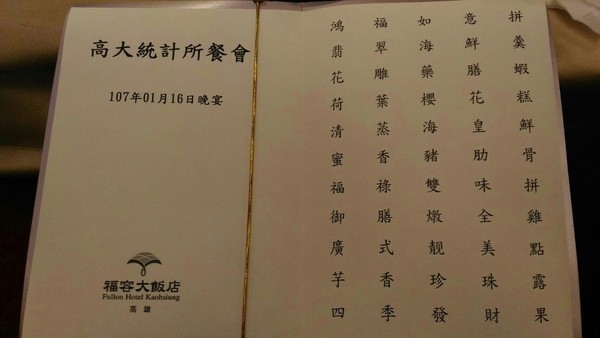 高大統計所餐會
107年01月16日晚宴
福容大飯店
Fullon Hotel Kaohsiung
高雄
鴻福如意拼
翡翠海鮮羹
花雕藥膳蝦
荷葉櫻花糕
清蒸海皇鮮
蜜香豬肋骨
福祿雙味拼
御膳燉全雞
廣式靚美點
芋香珍珠露
四季發財果